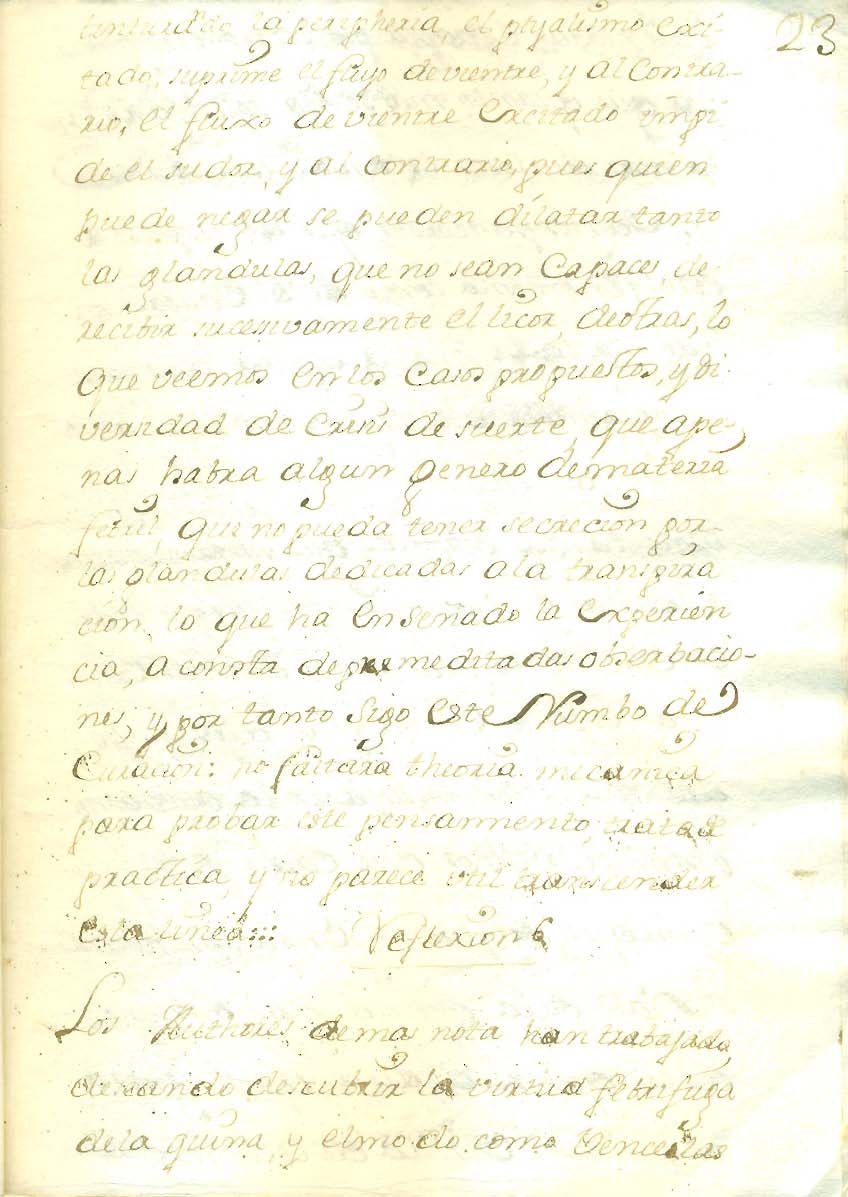 23
la peripheria, el ptyalismo exci-
tado, suprime el flujo de vientre, y al contra-
rio, el fluxo de vientre excitado impi
de el sudor, y al contrario, pues quien
puede negar se pueden dilatar tanto
las glandulas, que no sean capaces, de
recibir sucesivamente el licor, de otras, lo
que veemos en los casos propuestos, y di
versidad de Crisis de suerte, que ape-
nas habra algun genero de materia
febril, que no pueda tener secrecion por
las glandulas dedicadas a la transpira
cion, lo que ha enseñado la experien
cia, a consta de premeditadas obserbacio-
nes, y por tanto sigo este Rumbo de
Curacion: no faltara theoria mecanica
para probar este pensamiento, trata de
practica, y no parece util transcender
esta linea:::
Reflexion 6
Los Authores de mas nota han trabajado,
deseando descubrir la virtud febrifuga
de la quina, y el modo como vence las